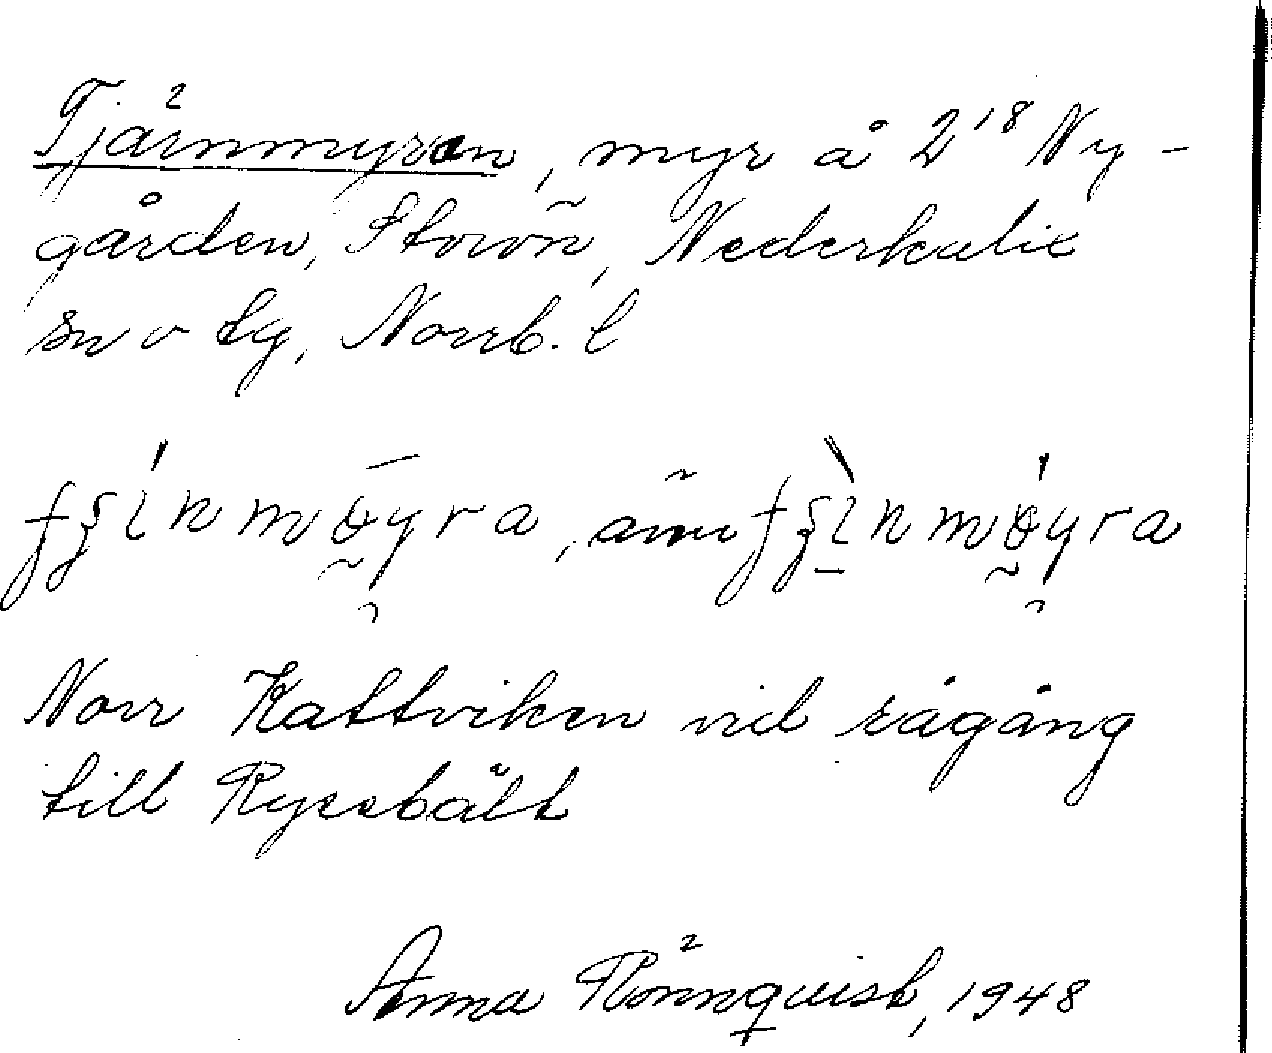 Tjärnmyran, myr å 2¹⁸ Ny-
gården, Storön, Nederkalix
sn o tg, Norrb. l
Norr Kattviken vid rågång
till Ryssbält
Anna Rönnquist, 1948